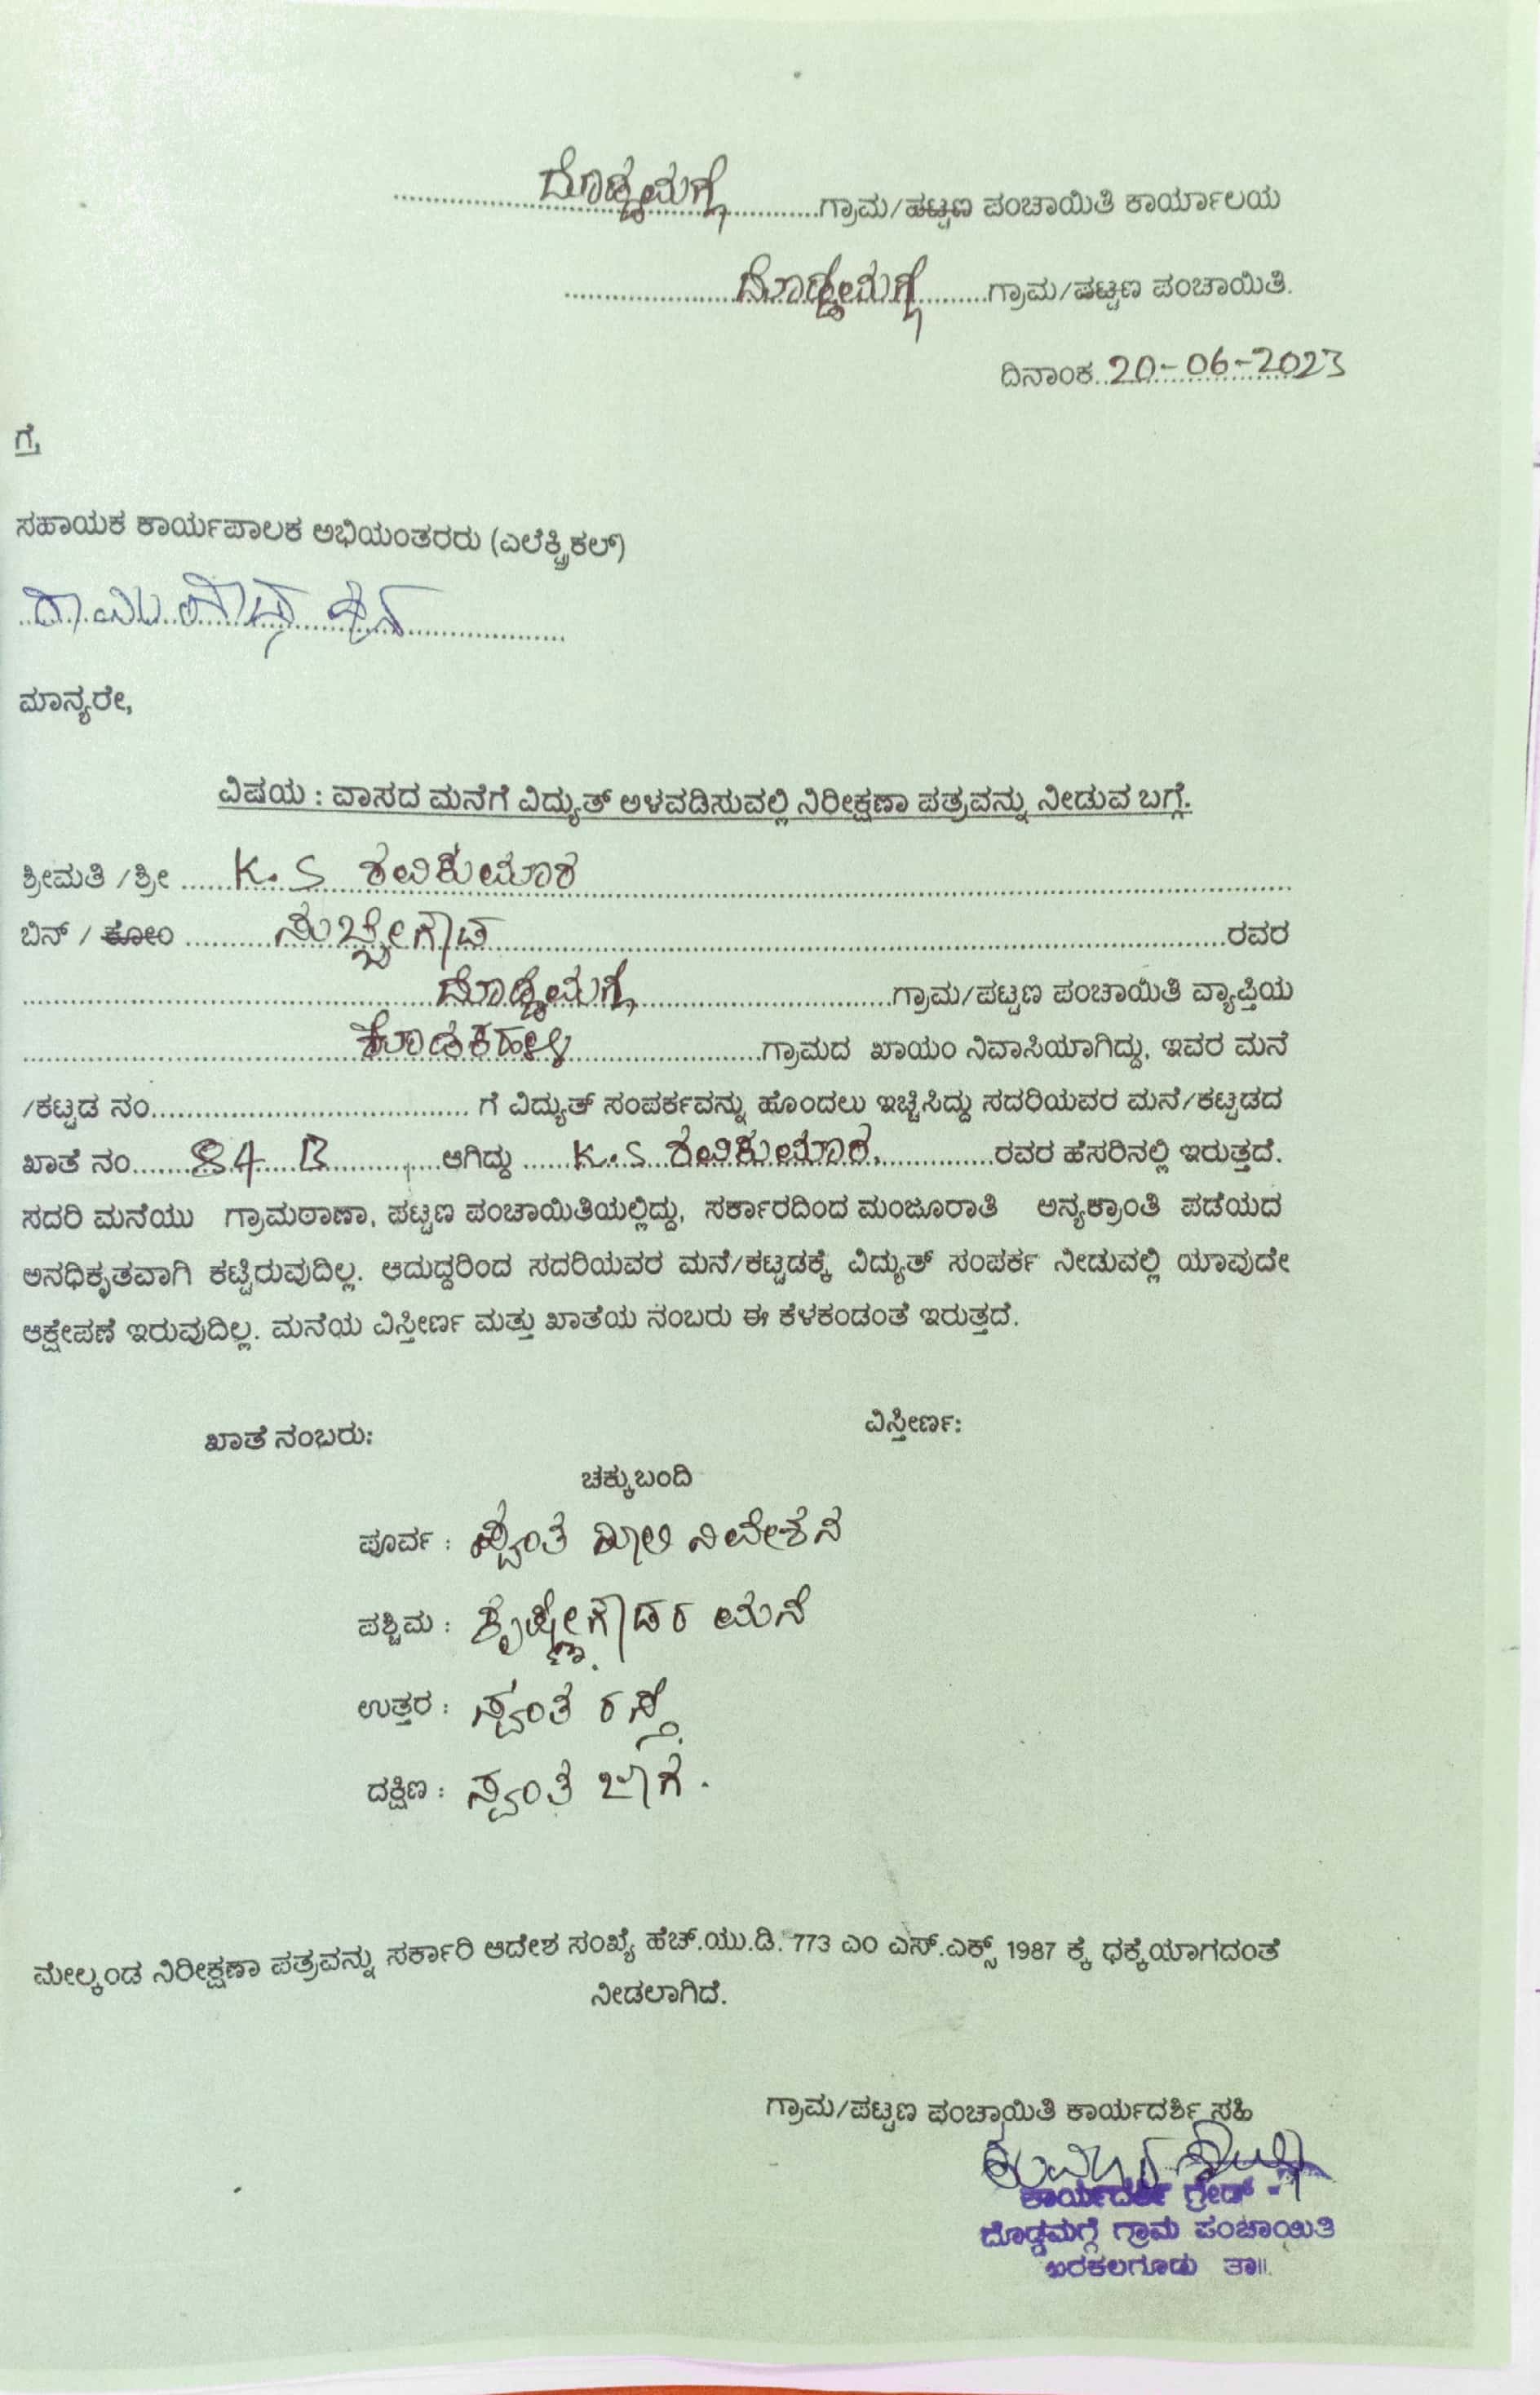 ದೊಡ್ಡಮಗ್ಗೆ ಗ್ರಾಮ/ಪಟ್ಟಣ ಪಂಚಾಯಿತಿ ಕಾರ್ಯಾಲಯ
ದೊಡ್ಡಮಗ್ಗೆ ಗ್ರಾಮ/ಪಟ್ಟಣ ಪಂಚಾಯಿತಿ.
ದಿನಾಂಕ 20-06-2023
ಗೆ,
ಸಹಾಯಕ ಕಾರ್ಯಪಾಲಕ ಅಭಿಯಂತರರು (ಎಲೆಕ್ಟ್ರಿಕಲ್)
ಮಾನ್ಯರೇ,
ವಿಷಯ : ವಾಸದ ಮನೆಗೆ ವಿದ್ಯುತ್ ಅಳವಡಿಸುವಲ್ಲಿ ನಿರೀಕ್ಷಣಾ ಪತ್ರವನ್ನು ನೀಡುವ ಬಗ್ಗೆ.
ಶ್ರೀಮತಿ /ಶ್ರೀ K. S ರವಿಕುಮಾರ
ಬಿನ್ / ಕೋಂ ಸುಬ್ಬೇಗೌಡ ರವರ
ದೊಡ್ಡಮಗ್ಗೆ ಗ್ರಾಮ/ಪಟ್ಟಣ ಪಂಚಾಯಿತಿ ವ್ಯಾಪ್ತಿಯ
ಗ್ರಾಮದ ಖಾಯಂ ನಿವಾಸಿಯಾಗಿದ್ದು, ಇವರ ಮನೆ
/ಕಟ್ಟಡ ನಂ. ಗೆ ವಿದ್ಯುತ್ ಸಂಪರ್ಕವನ್ನು ಹೊಂದಲು ಇಚ್ಚಿಸಿದ್ದು ಸದರಿಯವರ ಮನೆ/ಕಟ್ಟಡದ
ಖಾತೆ ನಂ. 84 B ಆಗಿದ್ದು K. S ರವಿಕುಮಾರ. ರವರ ಹೆಸರಿನಲ್ಲಿ ಇರುತ್ತದೆ.
ಸದರಿ ಮನೆಯು ಗ್ರಾಮಠಾಣಾ, ಪಟ್ಟಣ ಪಂಚಾಯಿತಿಯಲ್ಲಿದ್ದು, ಸರ್ಕಾರದಿಂದ ಮಂಜೂರಾತಿ ಅನ್ಯಕ್ರಾಂತಿ ಪಡೆಯದ
ಅನಧಿಕೃತವಾಗಿ ಕಟ್ಟಿರುವುದಿಲ್ಲ. ಆದುದ್ದರಿಂದ ಸದರಿಯವರ ಮನೆ/ಕಟ್ಟಡಕ್ಕೆ ವಿದ್ಯುತ್ ಸಂಪರ್ಕ ನೀಡುವಲ್ಲಿ ಯಾವುದೇ
ಆಕ್ಷೇಪಣೆ ಇರುವುದಿಲ್ಲ. ಮನೆಯ ವಿಸ್ತೀರ್ಣ ಮತ್ತು ಖಾತೆಯ ನಂಬರು ಈ ಕೆಳಕಂಡಂತೆ ಇರುತ್ತದೆ.
ಖಾತೆ ನಂಬರು: ವಿಸ್ತೀರ್ಣ:
ಚಕ್ಕುಬಂದಿ
ಪೂರ್ವ : ಸ್ವಂತ ಖಾಲಿ ನಿವೇಶನ
ಪಶ್ಚಿಮ : ಕೃಷ್ಣೇಗೌಡರ ಮನೆ
ಉತ್ತರ : ಸ್ವಂತ ರಸ್ತೆ
ದಕ್ಷಿಣ : ಸ್ವಂತ ಜಾಗ.
ಮೇಲ್ಕಂಡ ನಿರೀಕ್ಷಣಾ ಪತ್ರವನ್ನು ಸರ್ಕಾರಿ ಆದೇಶ ಸಂಖ್ಯೆ ಹೆಚ್.ಯು.ಡಿ. 773 ಎಂ ಎಸ್.ಎಕ್ಸ್ 1987 ಕ್ಕೆ ಧಕ್ಕೆಯಾಗದಂತೆ
ನೀಡಲಾಗಿದೆ.
ಗ್ರಾಮ/ಪಟ್ಟಣ ಪಂಚಾಯಿತಿ ಕಾರ್ಯದರ್ಶಿ ಸಹಿ
ಕಾರ್ಯದರ್ಶಿ ಗ್ರೇಡ್ -
ದೊಡ್ಡಮಗ್ಗೆ ಗ್ರಾಮ ಪಂಚಾಯಿತಿ
ಅರಕಲಗೂಡು ತಾ||